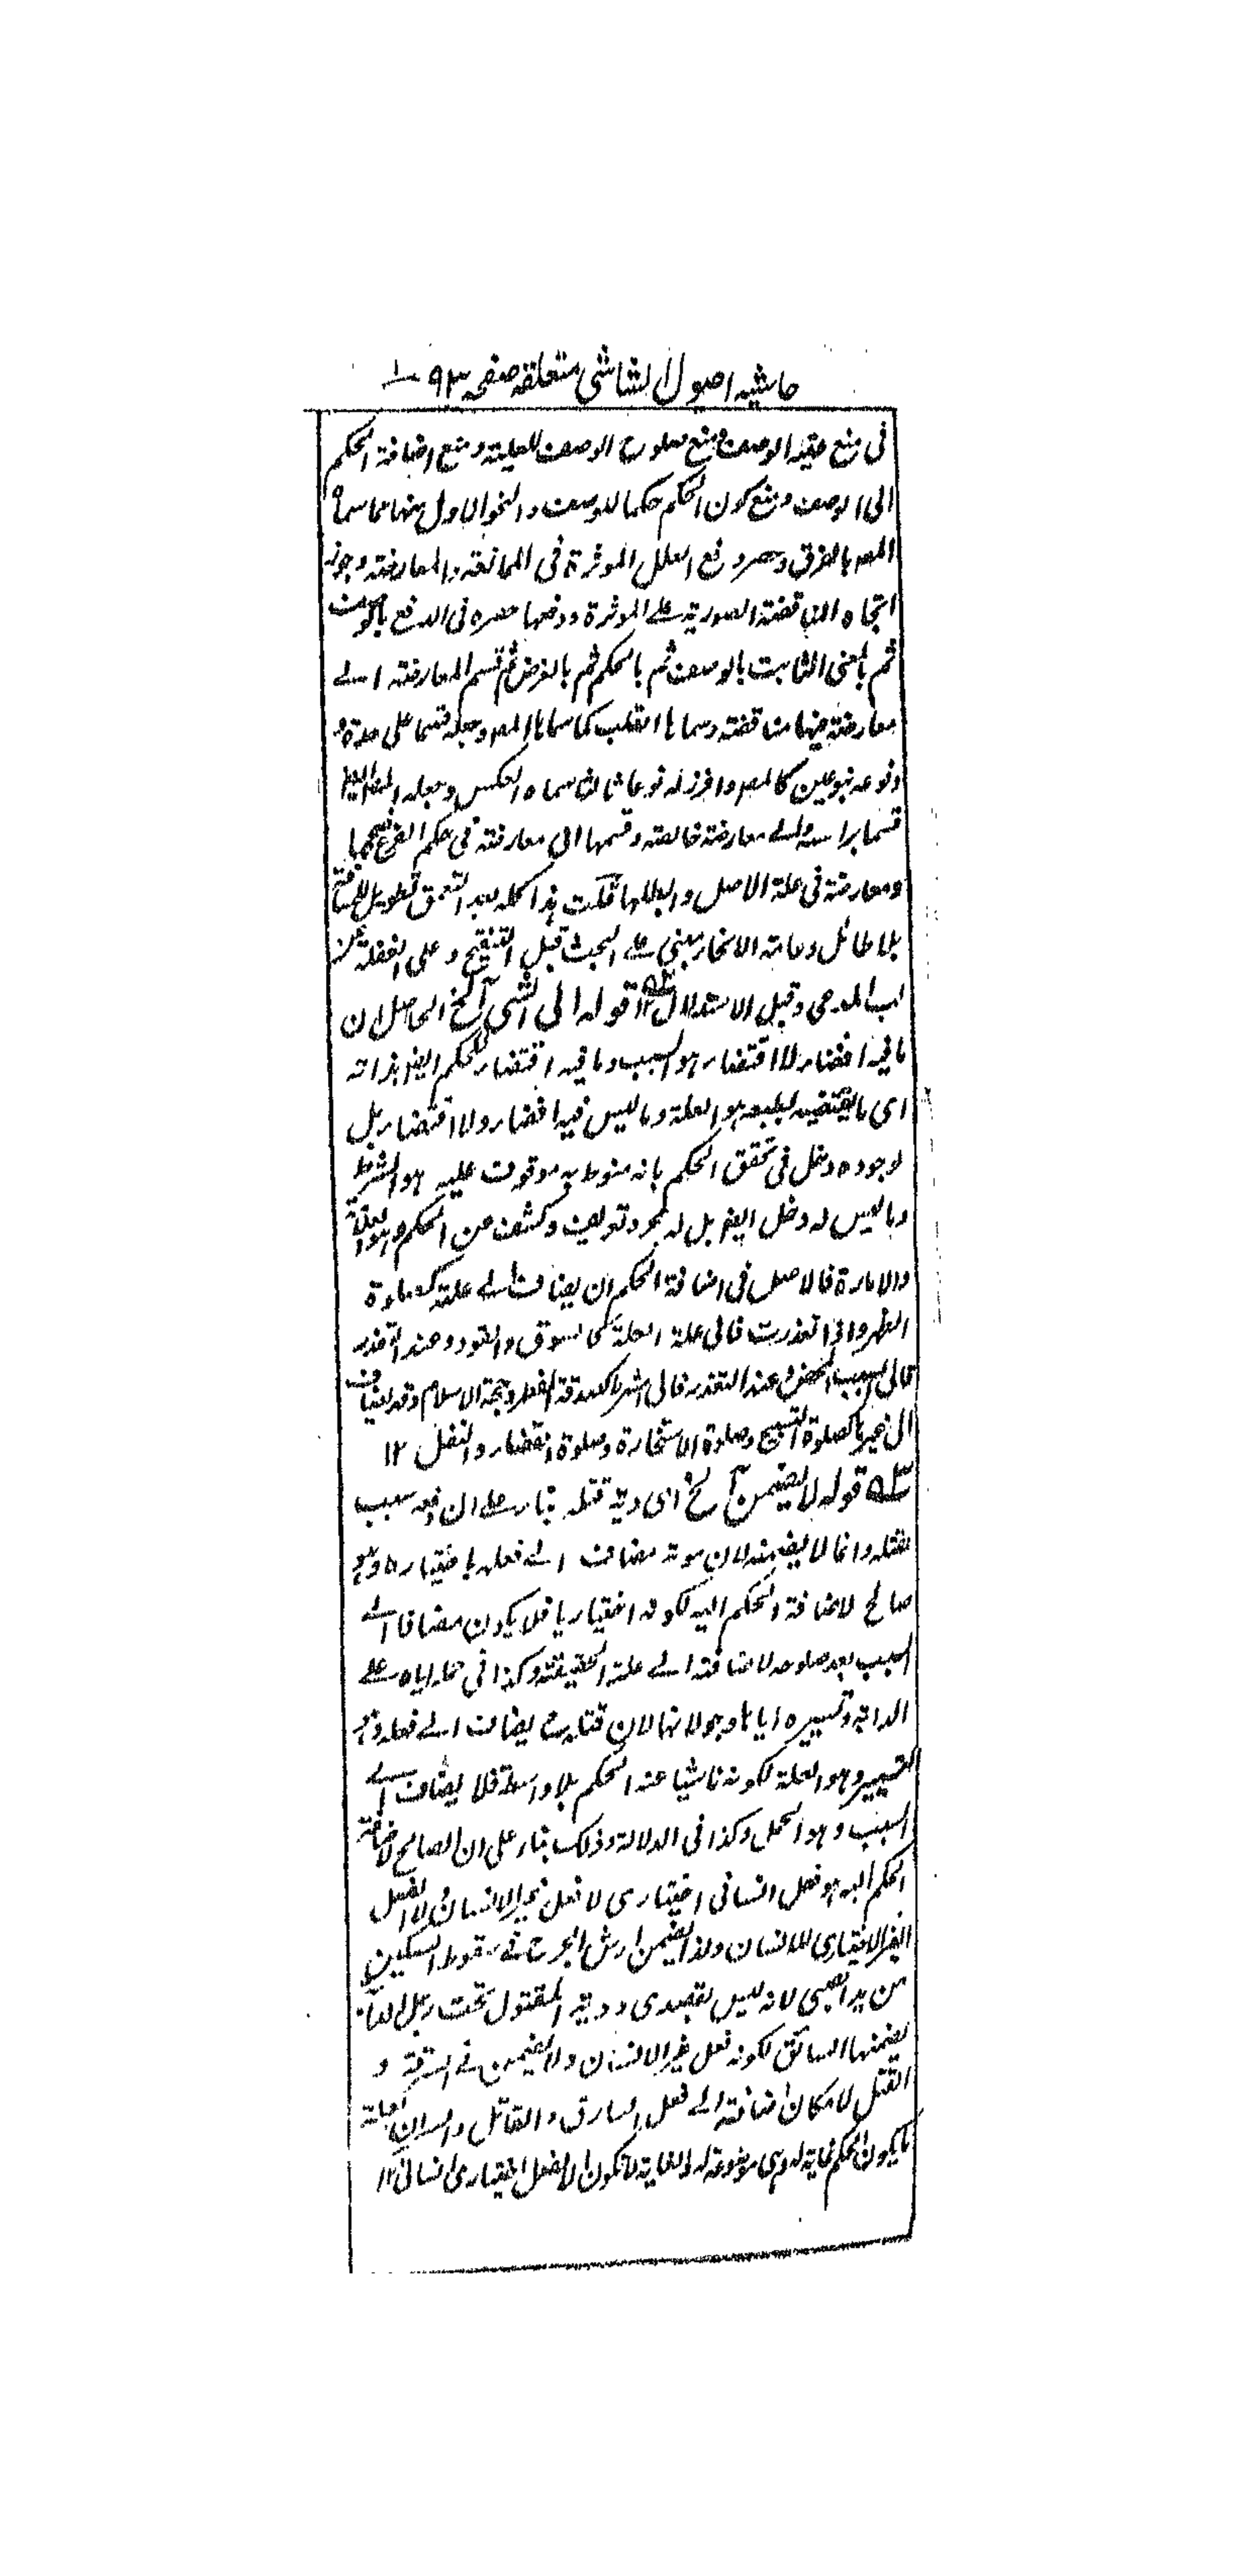 حاشیه اصول الشاشی متعلقه صفحه ۹۳
فی منع عقیه الوصف و منع صلوح الوصف للعلیة و منع اضافة الحکم
الی الوصف و منع کون الحکم حکما للوصف و النحو الاول منها مما سماه
المصر بالفرق و حصر دفع العلل الموثرة فی الممانعة و المعارضة و جوز
اتجاه المناقضة الصوریة علی الموثرة و دفعها حصره فی الدفع بالوصف
ثم بالمعنی الثابت بالوصف ثم بالحکم ثم بالغرض ثم قسم المعارضة الے
معارضة فیها مناقضة و سماها القلب کما سماها المصر و جعله قسما علی حدة
و نوعه بنوعین کالمصر و افرز له نوعا ثالثا سماه العکس و جعله المصر ایضا
قسما براسه والے معارضة خالصة و قسمها الی معارضة فی حکم الفرع
و معارضة فی علة الاصل و ابطلها قلت هذا کله بعد التعمق تطویل للمسافة
بلا طائل و عامة الانحار مبنی علے البحث قبل التنقیح و علی الغفلة عن
لب المدعی و قبل الاستدلال ۱۲ قوله الی الشی آلخ الحاصل ان
ما فیه افضاء لا اقتضاء هو السبب و ما فیه اقتضاء للحکم ایضا بذاته
ای ما یقتضیه لطبعه هو العلة و ما لیس فیه افضاء ولا اقتضاء بل
لوجوده دخل فی تحقق الحکم بانه منوط به موقوف علیه هو الشرط
و ما لیس له دخل ایضا بل له مجرد تعریف و کشف عن الحکم هو العلامة
والامارة فالاصل فی اضافة الحکم ان یضاف الے علته کصلوة
الظهر واذا تعذرت فالی علة العلة کالسوق والقود و عند التعذر
فالی السبب المحض و عند التعذر فالی الشرط کصدقة الفطر و حجة الاسلام و قد یضاف
الی غیرها کصلوة التسبیح و صلوة الاستخارة و صلوة القضاء والنفل ۱۲
قوله لا یضمن آلخ ای دیة قتله بناء علے ان دفعه سبب
لقتله وانما لا یضمنه لان موته مضاف الے فعله باختیاره و هو
صالح لاضافة الحکم الیه لکونه اختیاریا فلا یکون مضافا الے
السبب بعد صلوحه لاضافته الے علته الحقیقة و کذا فی حمله ایاه علے
الدابة و تسییره ایاها و جولانها لان قتله یضاف الے فعله و هو
التسییر و هو العلة لکونه ناشیا عنه الحکم بلا واسطة فلا یضاف الے
السبب و هو الحمل و کذا فی الدلالة و ذلک بناء علی ان الصالح لاضافة
الحکم الیه هو فعل انسانی اختیاری لا فعل غیر الانسان ولا الفعل
الغیر الاختیاری للانسان ولذا یضمن ارش الجرح فے سقوط السکین
من ید الصبی لانه لیس بقصدی و دیة المقتول تحت رجل الدابة
یضمنها السائق لکونه فعل غیر الانسان ولا یضمن فے السرقة و
القتل لامکان اضافته الے فعل السارق و القاتل
ما یکون الحکم غایة له و هی موضوعة له والغایة لا تکون الا لفعل اختیاری انسانی ۱۲